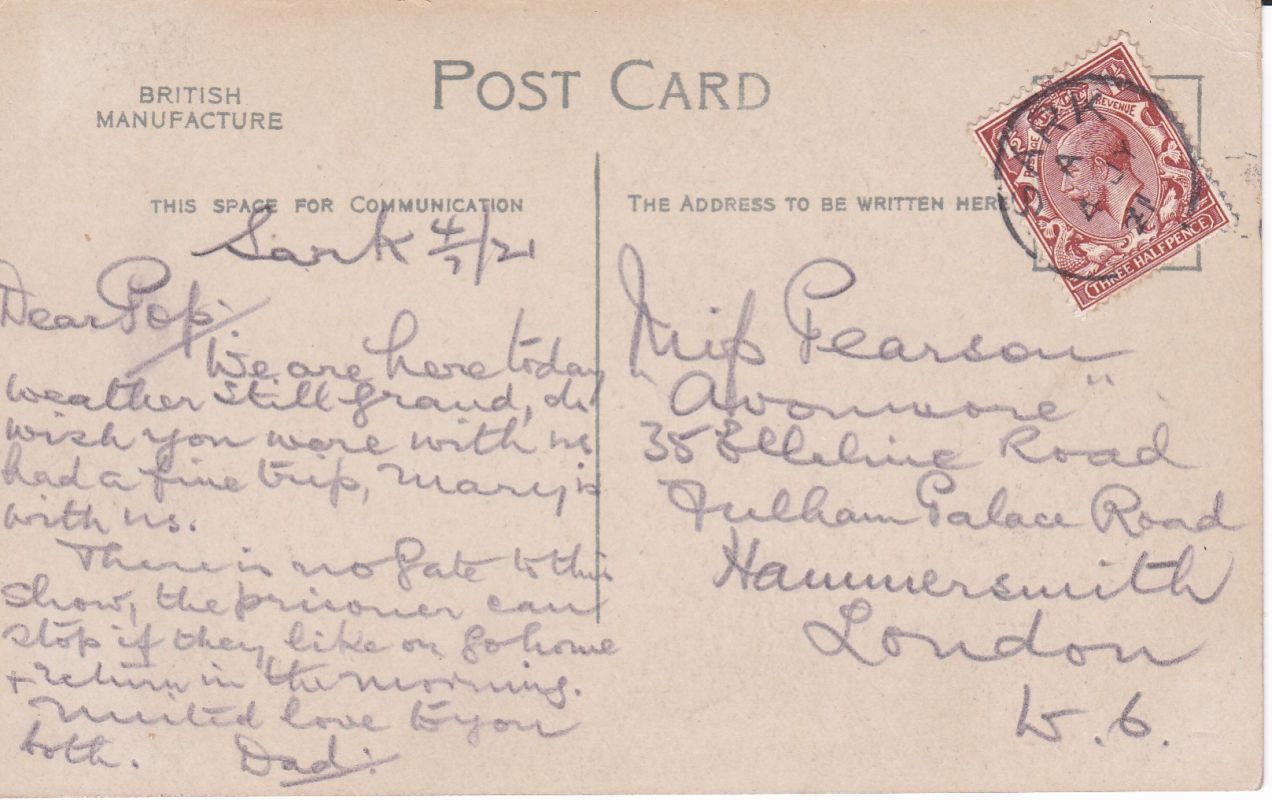 POST CARD
BRITISH
MANUFACTURE
THIS SPACE FOR COMMUNICATION
THE ADDRESS TO BE WRITTEN HERE
Sark 4/7/21
Dear Pop.
We are here today
weather still grand, do
wish you were with us
had a fine trip, Mary is
with us.
There is no gate to this
show, the prisoner can
stop if they like or go home
+ return in the morning.
United love to you
both. Dad.
Miss Pearson
"Avonmore"
35 Ellaline Road
Fulham Palace Road
Hammersmith
London
W.6.
REVENUE
THREE HALFPENCE
SARK
A
4 JY
21